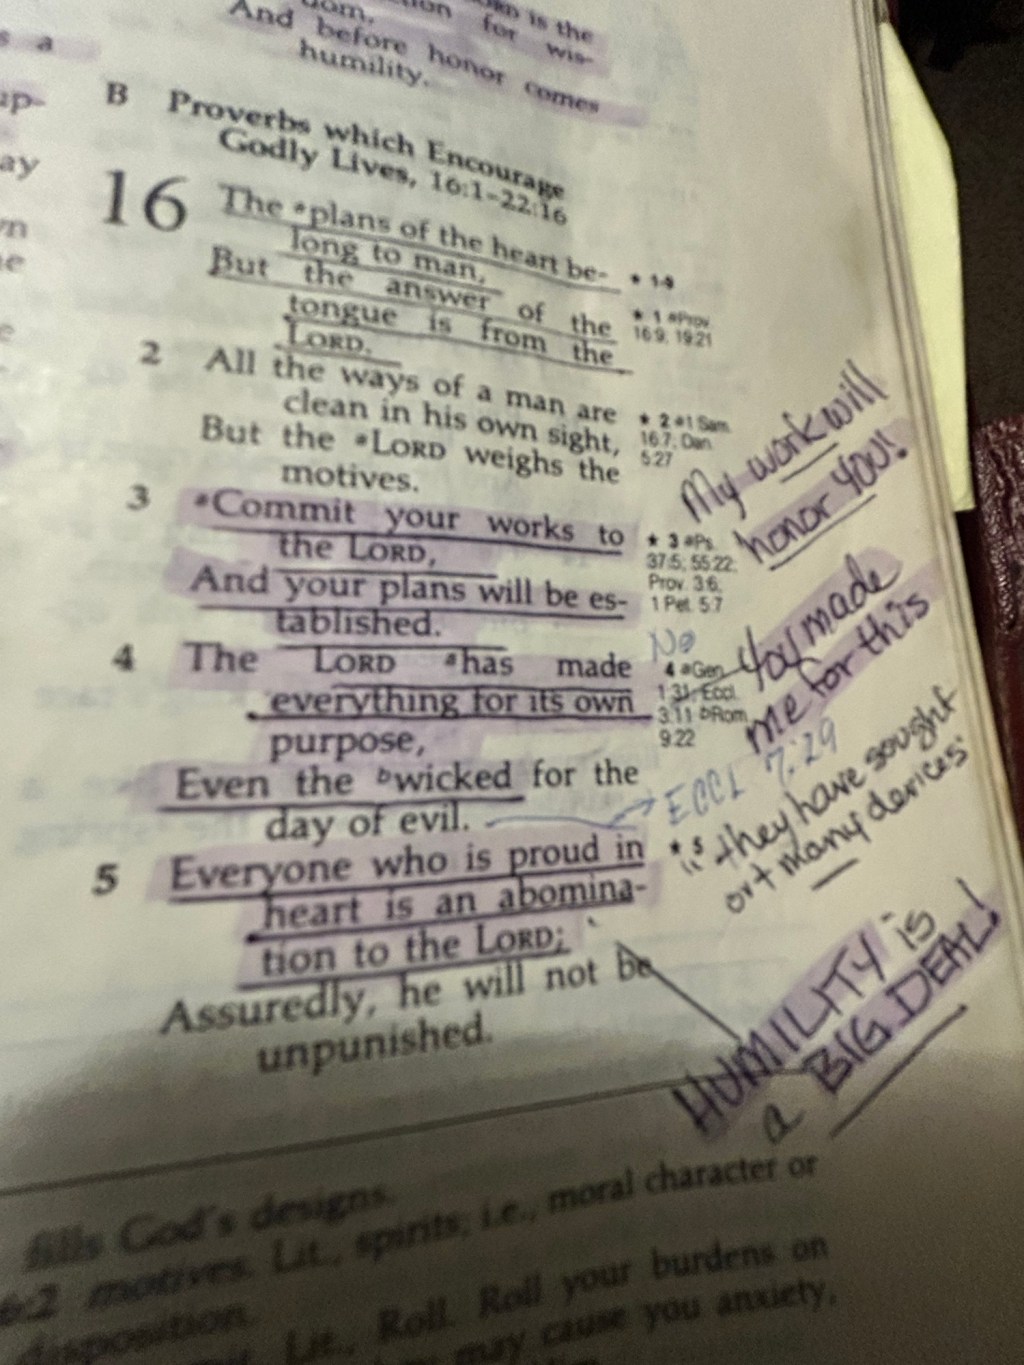 s a
up-
ay
is the
for wis-
And before honor comes
humility.
B Proverbs which Encourage
Godly Lives, 16:1–22:16
16 The ªplans of the heart be-
long to man,
But the answer of the
tongue is from the
LORD.
2 All the ways of a man are
clean in his own sight,
But the ªLORD weighs the
motives.
3 ªCommit your works to
the LORD,
And your plans will be es-
tablished.
4 The LORD ªhas made
everything for its own
purpose,
Even the ᵇwicked for the
day of evil.
5 Everyone who is proud in
heart is an abomina-
tion to the LORD;
Assuredly, he will not be
unpunished.
★ 1-9
★ 1 ªProv.
16:9; 19:21
★ 2 ª1 Sam.
16:7; Dan.
5:27
★ 3 ªPs.
37:5; 55:22;
Prov. 3:6;
1 Pet. 5:7
No
4 ªGen.
1:31; Eccl.
3:11 ᵇRom.
9:22
★ 5
My work will
honor YOU!
You made
me for this
ECCL 7:29
"they have sought
out many devices"
HUMILITY is
a BIG DEAL!
fills God's designs.
6:2 motives. Lit., spirits; i.e., moral character or
disposition.
Lit., Roll. Roll your burdens on
may cause you anxiety,